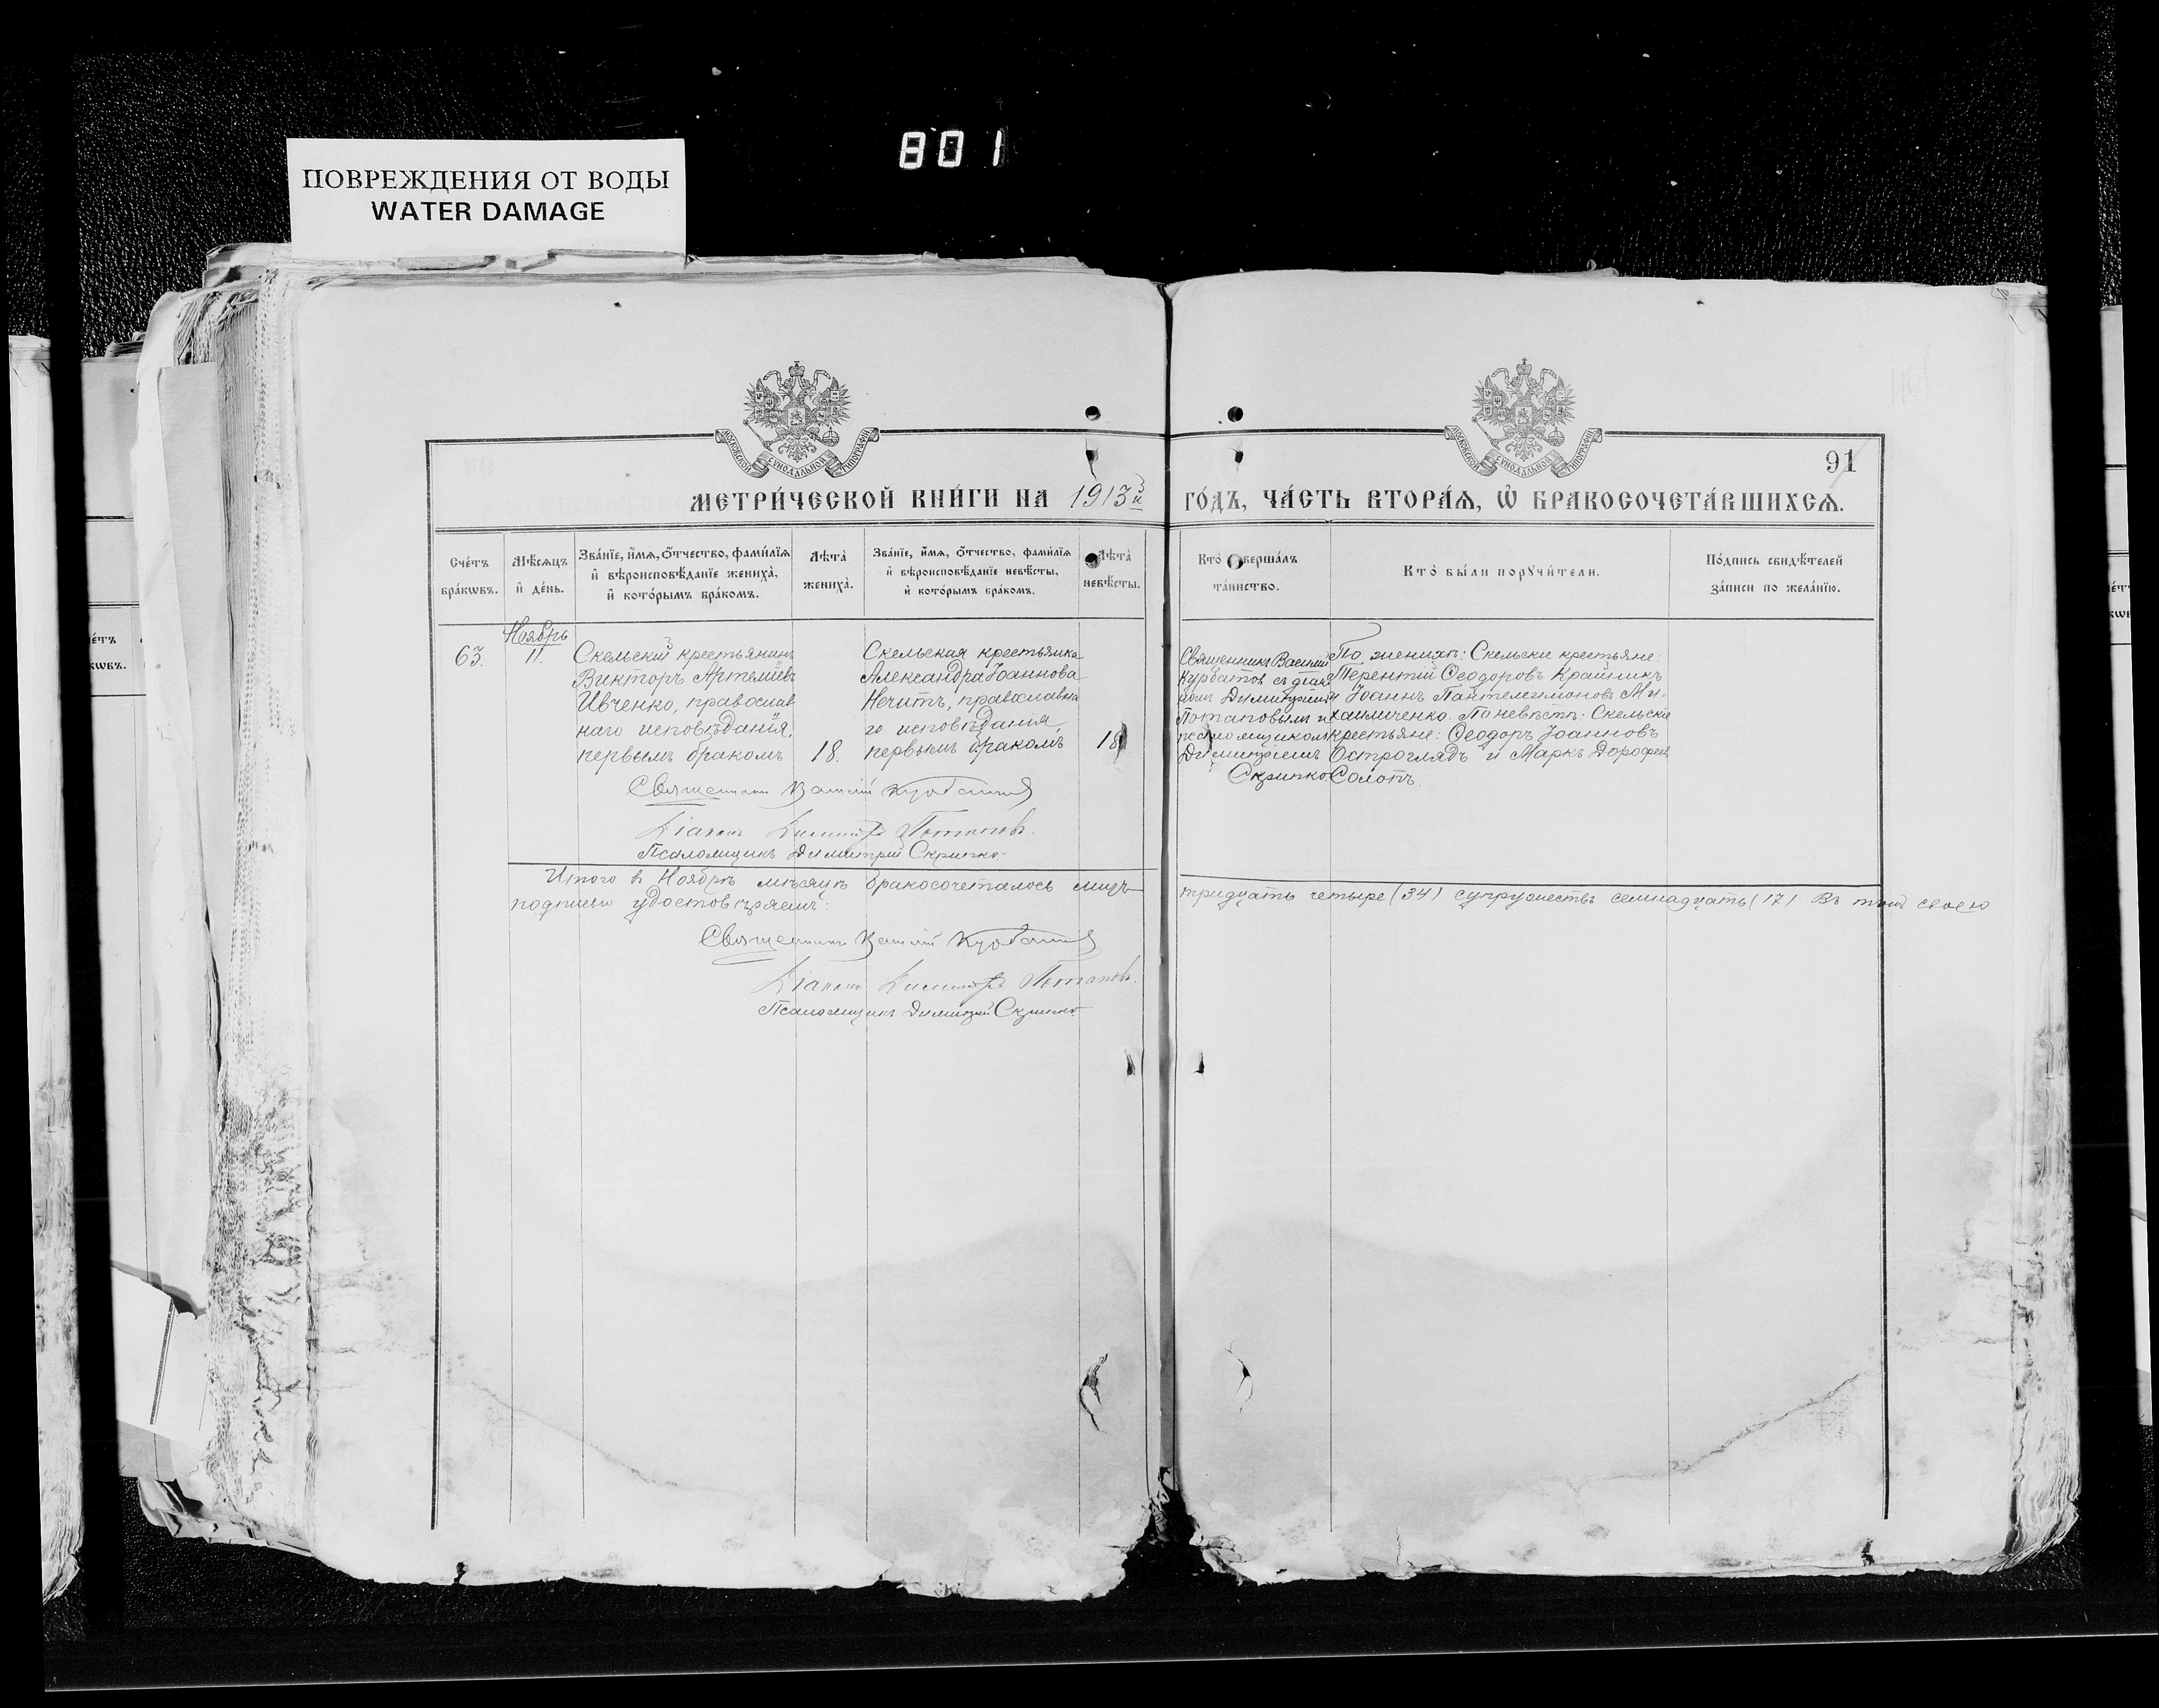 801
ПОВРЕЖДЕНИЯ ОТ ВОДЫ
WATER DAMAGE
МОСКОВСКОЙ СѴНОДАЛЬНОЙ ТИПОГРАФІИ
МОСКОВСКОЙ СѴНОДАЛЬНОЙ ТИПОГРАФІИ
91
МЕТРИ́ЧЕСКОЙ КНИ́ГИ НА 1913й ГО́ДЪ, ЧА́СТЬ ВТОРА́Ѧ, Ѽ БРАКОСОЧЕТА́ВШИХСѦ.
Сче́тъ
бра́кѡвъ.
Мѣ́сѧцъ
и҆ де́нь.
Зва́нїе, и҆́мѧ, ѻ҆́тчество, фами́лїѧ
и҆ вѣроисповѣ́данїе жениха̀,
и҆ кото́рымъ бра́комъ.
Лѣ́та̀
жениха̀.
Зва́нїе, и҆́мѧ, ѻ҆́тчество, фами́лїѧ
и҆ вѣроисповѣ́данїе невѣ́сты,
и҆ кото́рымъ бра́комъ.
Лѣ́та̀
невѣ́сты.
Кто̀ соверша́лъ
та́инство.
Кто̀ бы́ли порꙋчи́тели.
По́дпись свидѣ́телей
за́писи по жела́нїю.
Ноябрь
63.
11.
Скельскій крестьянинъ
Викторъ Артеміевъ
Ивченко, православ
наго исповѣданія,
первымъ бракомъ
18.
Скельская крестьянка
Александра Іоаннова
Нечитъ, православна
го исповѣданія,
первымъ бракомъ
18
Священникъ Василій
Курбатов съ діако
номъ Димитріемъ
Потаповымъ и
псаломщикомъ
Димитріемъ
Скрипко.
По женихѣ: Скельскіе крестьяне:
Терентій Ѳеодоровъ Крайникъ
и Іоаннъ Пантелеимоновъ Ми-
хаиличенко. По невѣстѣ: Скельскіе
крестьяне: Ѳеодоръ Іоанновъ
Остроглядъ и Маркъ Дорофеев
Солопъ.
Священникъ Василій Курбатов
Діаконъ Димитрій Потаповъ.
Псаломщикъ Димитрій Скрипко.
Итого въ Ноябрѣ мѣсяцѣ бракосочеталось лицъ тридцать четыре (34) супружествъ семнадцать (17) Въ томъ своею
подписью удостовѣряемъ:
Священникъ Василій Курбатов
Діаконъ Димитрій Потаповъ.
Псаломщикъ Димитрій Скрипко.